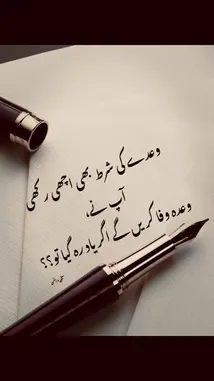 وعدے کی شرط بھی اچھی رکھی
آپ نے،
وعدہ وفا کریں گے اگر یاد رہ گیا تو؟؟